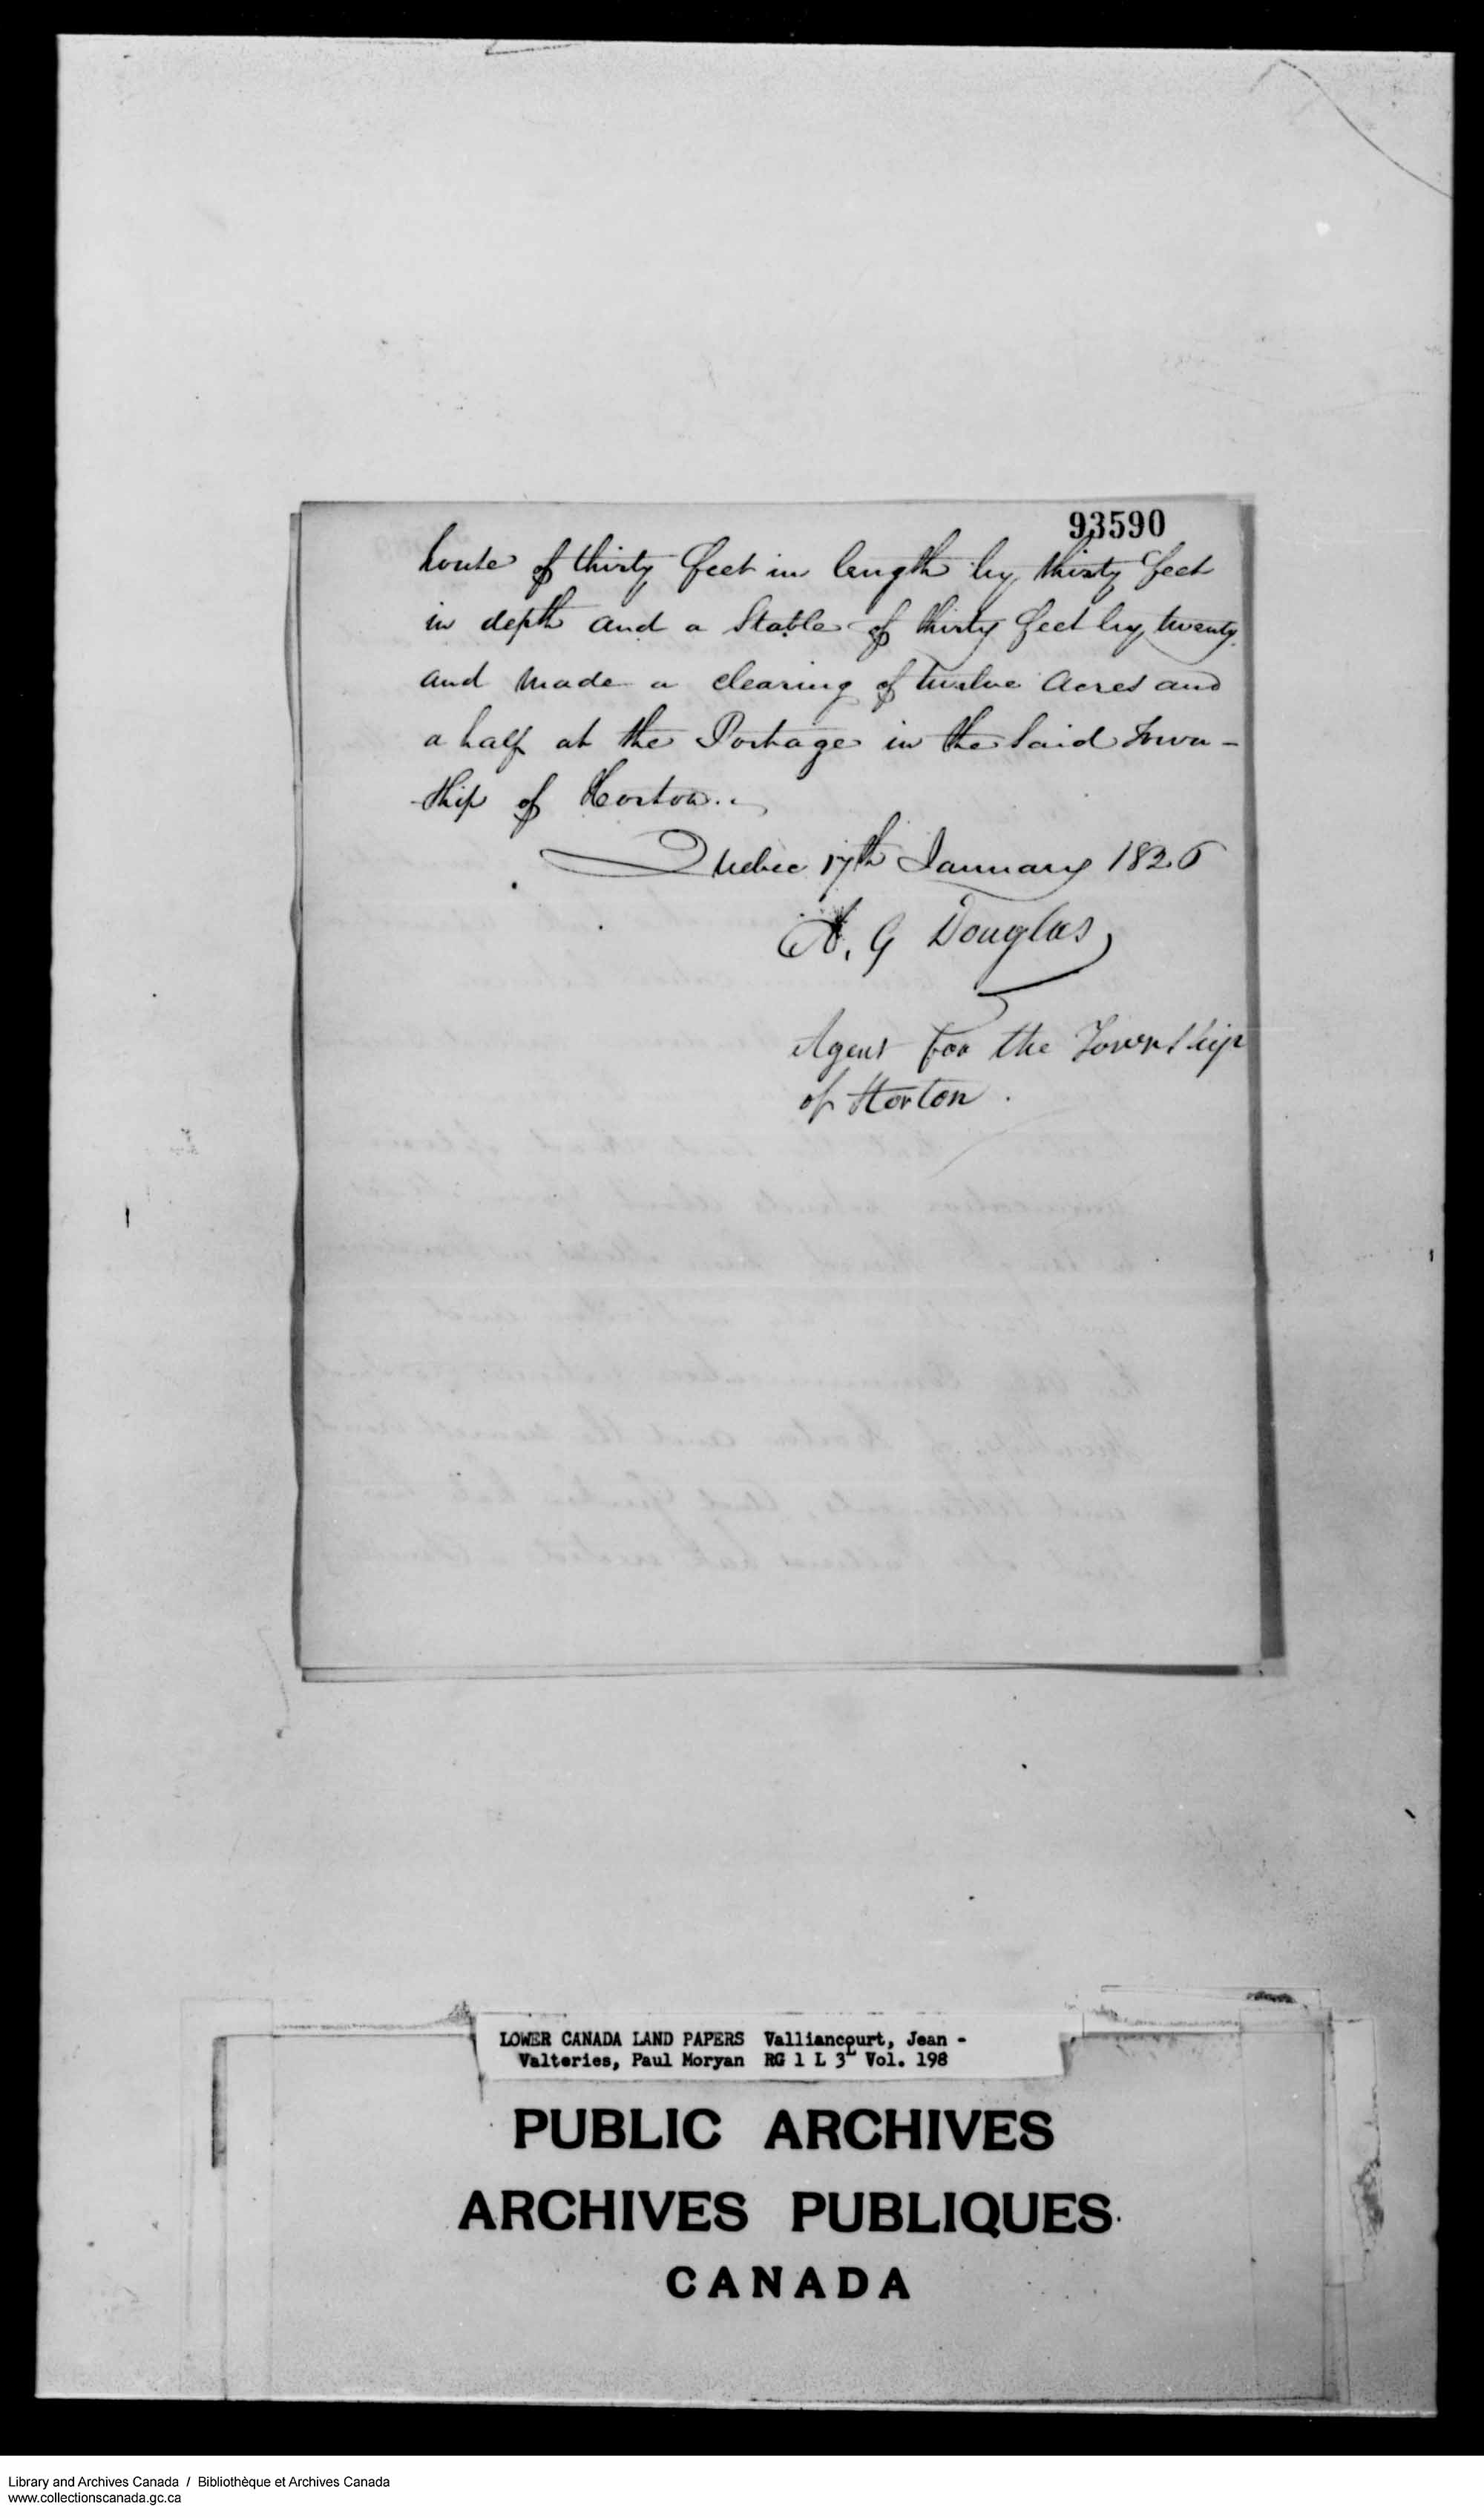 93590
house of thirty feet in length by thirty feet
in depth and a Stable of thirty feet by twenty
and made a clearing of twelve Acres and
a half at the Portage in the Said Town-
ship of Horton.
Quebec 17th January 1826
A. G Douglas
Agent for the Township
of Horton.
LOWER CANADA LAND PAPERS Valliancourt, Jean -
Valteries, Paul Moryan RG 1 L 3L Vol. 198
PUBLIC ARCHIVES
ARCHIVES PUBLIQUES
CANADA
Library and Archives Canada / Bibliothèque et Archives Canada
www.collectionscanada.gc.ca